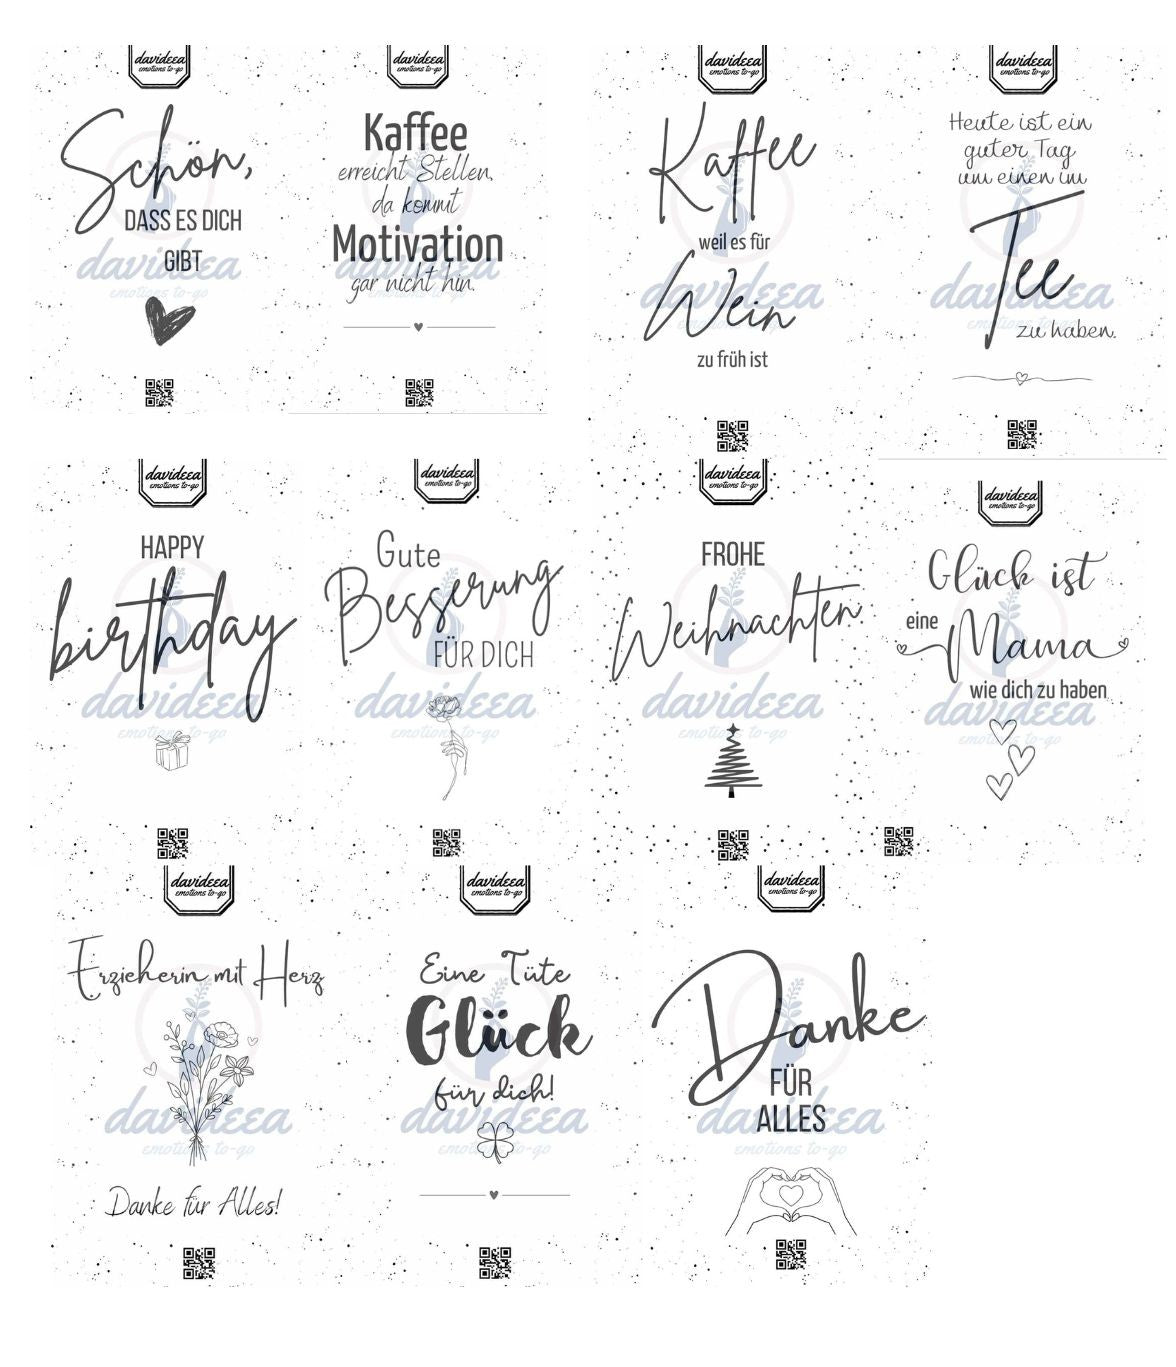 davideea
emotions to-go
Schön,
DASS ES DICH
GIBT
davideea
emotions to-go
davideea
emotions to-go
Kaffee
erreicht Stellen,
da kommt
Motivation
gar nicht hin.
davideea
emotions to-go
davideea
emotions to-go
Kaffee
weil es für
Wein
zu früh ist
davideea
emotions to-go
davideea
emotions to-go
Heute ist ein
guter Tag
um einen im
Tee
zu haben.
davideea
emotions to-go
davideea
emotions to-go
HAPPY
birthday
davideea
emotions to-go
davideea
emotions to-go
Gute
Besserung
FÜR DICH
davideea
emotions to-go
davideea
emotions to-go
FROHE
Weihnachten
davideea
emotions to-go
davideea
emotions to-go
Glück ist
eine
Mama
wie dich zu haben
davideea
emotions to-go
davideea
emotions to-go
Erzieherin mit Herz
davideea
emotions to-go
Danke für Alles!
davideea
emotions to-go
Eine Tüte
Glück
für dich!
davideea
emotions to-go
davideea
emotions to-go
Danke
FÜR
ALLES
davideea
emotions to-go